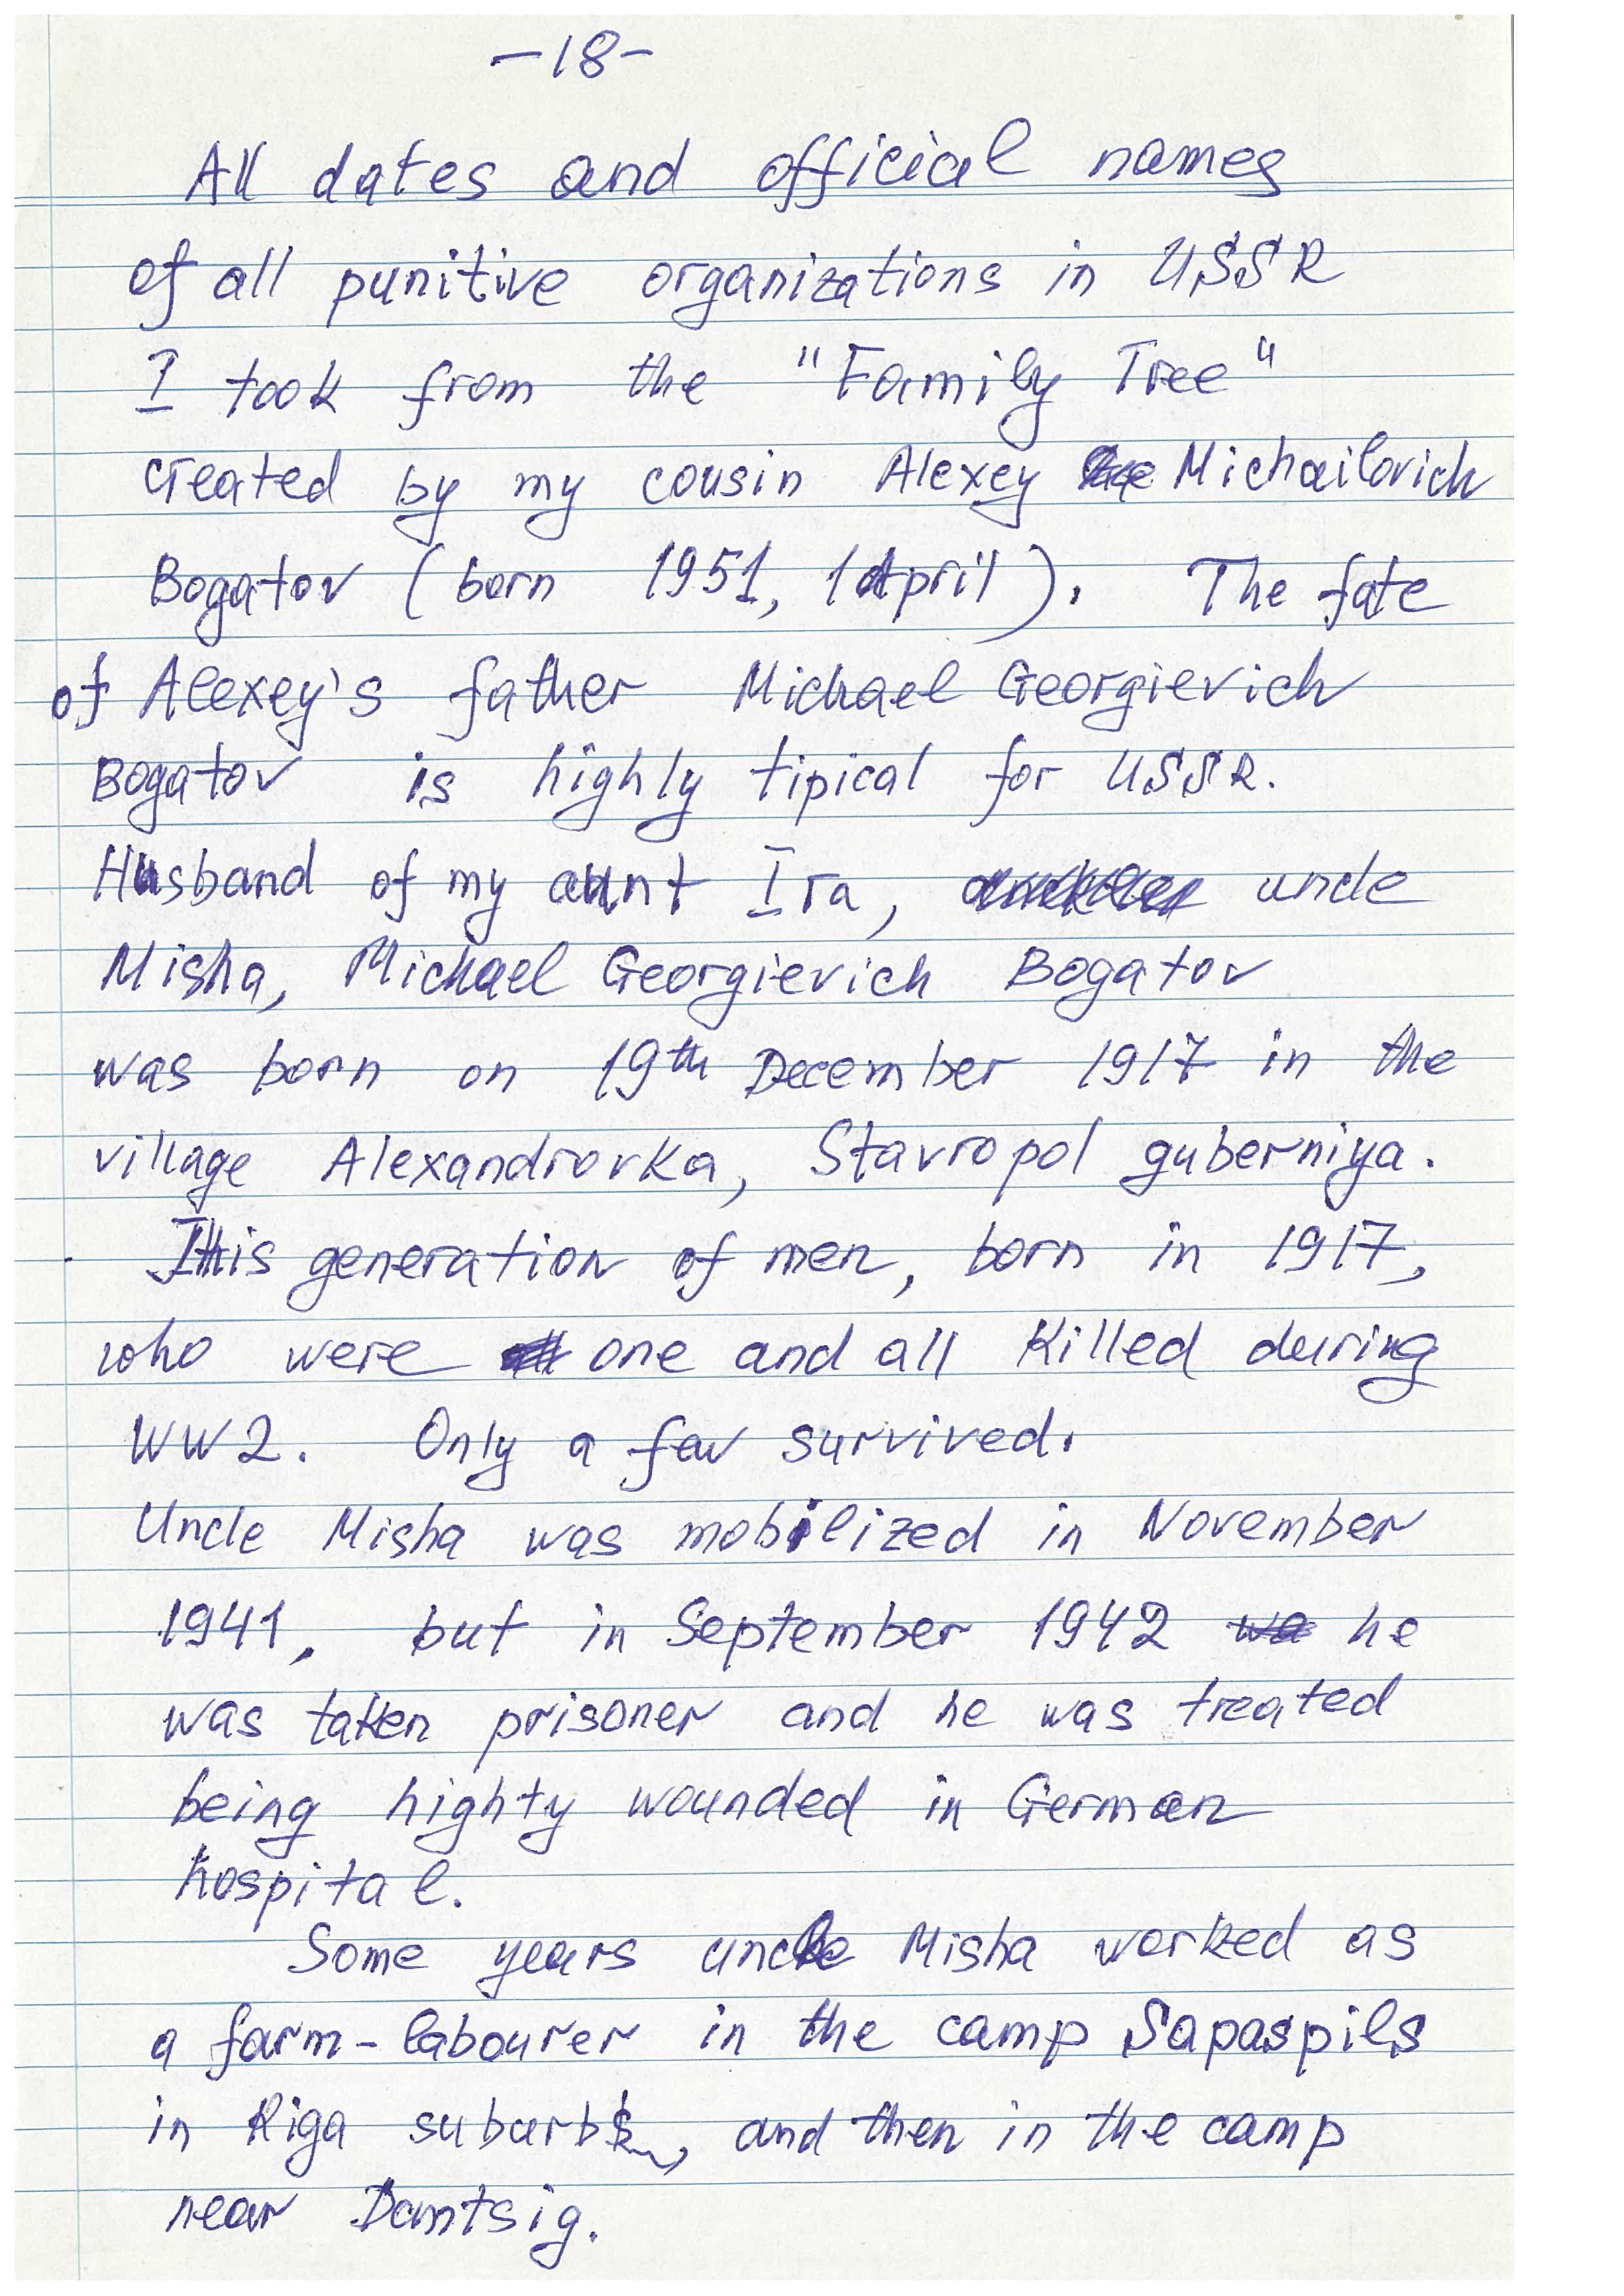 -18-
All dates and official names
of all punitive organizations in USSR
I took from the "Family Tree"
created by my cousin Alexey Michailovich
Bogatov (born 1951, 1 April). The fate
of Alexey's father Michael Georgievich
Bogatov is highly tipical for USSR.
Husband of my aunt Ira, uncle
Misha, Michael Georgievich Bogatov
was born on 19th December 1917 in the
village Alexandrovka, Stavropol guberniya.
This generation of men, born in 1917,
who were one and all killed during
WW2. Only a few survived.
Uncle Misha was mobilized in November
1941, but in September 1942 he
was taken prisoner and he was treated
being highty wounded in German
hospital.
Some years uncle Misha worked as
a farm-labourer in the camp Sapaspils
in Riga suburbs, and then in the camp
near Dantsig.